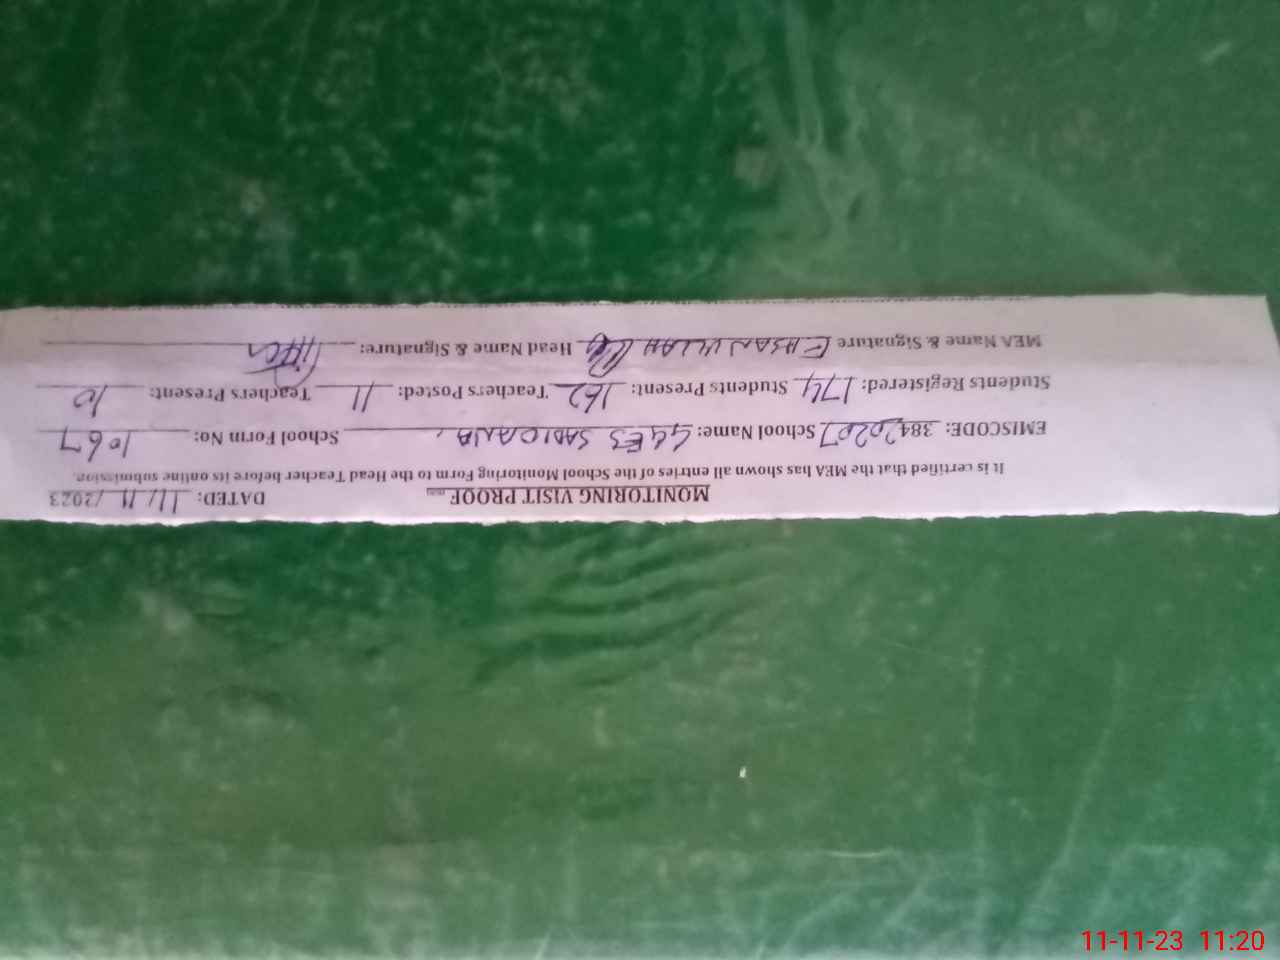 MONITORING VISIT PROOF DATED: 11/11/2023
It is certified that the MEA has shown all entries of the School Monitoring Form to the Head Teacher before its online submission.
EMISCODE: 38420207 School Name: GGES SADIOANA School Form No: 1067
Students Registered: 174 Students Present: 162 Teachers Posted: 11 Teachers Present: 10
MEA Name & Signature EHSAN ULLAH Head Name & Signature:
11-11-23 11:20